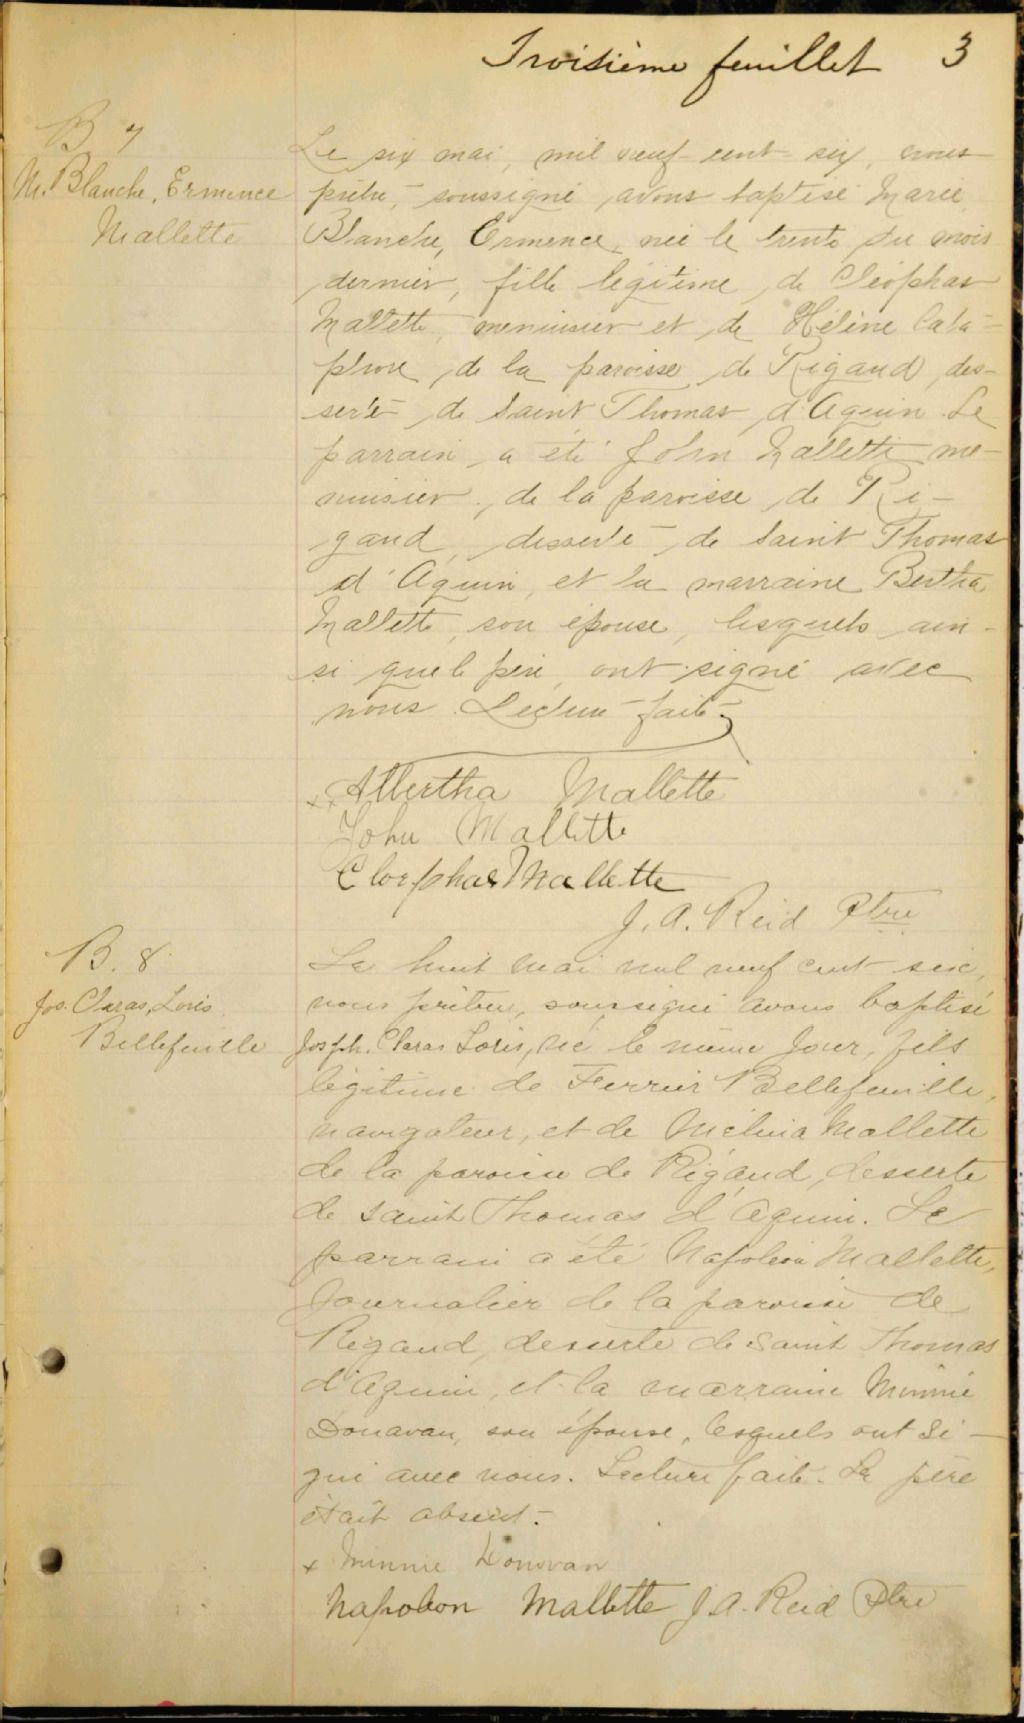 Troisième feuillet 3
B 7
M. Blanche, Ermence
Mallette
Le six mai, mil neuf cent six, nous
prêtre, soussigné, avons baptisé Marie,
Blanche, Ermence, née le trente du mois
dernier, fille légitime, de Cléophas
Mallette, menuisier et de Hélène Lala-
de la paroisse de Rigaud, des-
serte de Saint Thomas d'Aquin. Le
parrain a été John Mallette me-
nuisier, de la paroisse de Ri-
gaud, desserte de Saint Thomas
d'Aquin, et la marraine Bertha
Mallette, son épouse, lesquels ain-
si que le père, ont signé avec
nous. Lecture faite.
x x Albertha Mallette
John Mallette
Cleophas Mallette
J. A. Reid Ptre
B. 8
Jos. Claras, Loris
Bellefeuille
Le huit mai mil neuf cent six,
nous prêtre, soussigné avons baptisé
Joseph. Claras Loris, né le même jour, fils
légitime de Ferrier Bellefeuille,
navigateur, et de Mélina Mallette
de la paroisse de Rigaud, desserte
de Saint Thomas d'Aquin. Le
parrain a été Napoléon Mallette,
Journalier de la paroisse de
Rigaud, desserte de Saint Thomas
d'Aquin, et la marraine Minnie
Donavan, son épouse, lesquels ont si-
gné avec nous. Lecture faite. Le père
était absent.-
x Minnie Donovan
Napoleon Mallette J. A. Reid Ptre